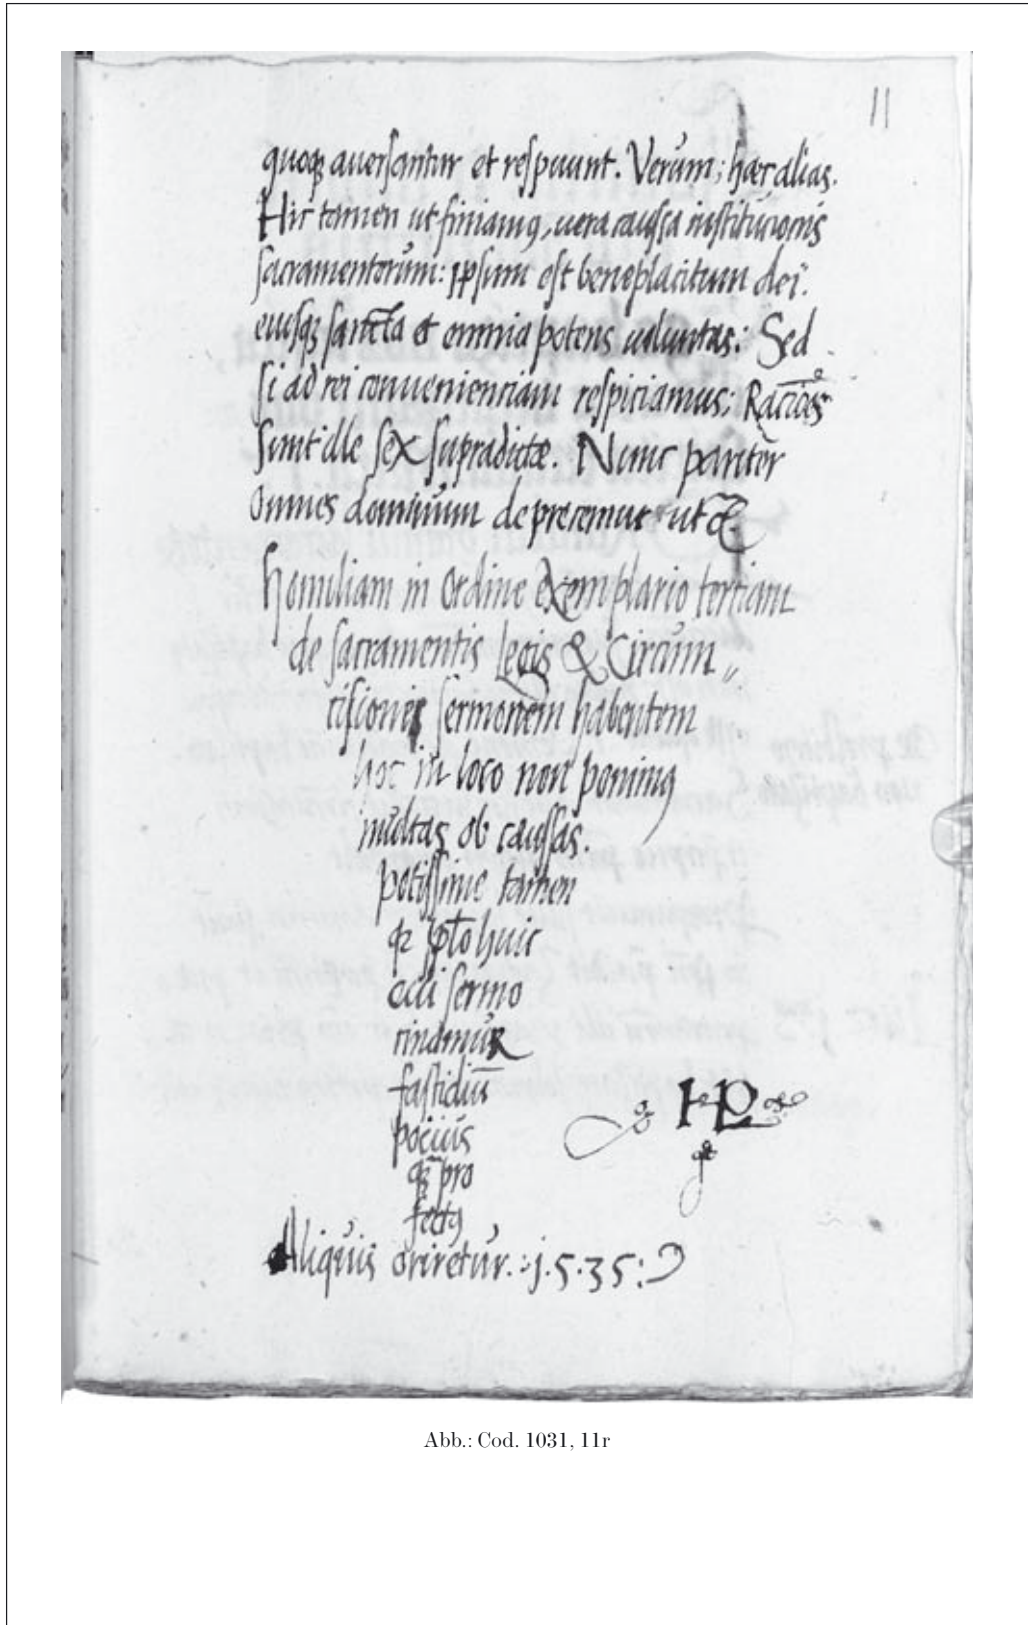 11
quoqꝫ auersantur et respuunt. Verùm; hæc alias.
Hic tamen ut finiamꝯ, uera caussa institucionis
sacramentorum: ipsum est beneplacitum dei.
eiusqꝫ sancta et omnia potens uoluntas: Sed
si ad rei conuenienciam respiciamus; Racioẽs
sunt ille sex supradictæ. Nunc pariter
omnes dominum deprecemur ut &c̃.
Homiliam in Ordine exemplario tertiam
de sacramentis Legis & Circum〃
cisionis sermonem habentem
hoc in loco non ponimꝯ
multas ob caussas.
potissime tamen
huic
sermo
cinamur
fastidiū
pocius
pro
fectꝯ
Aliquis oriretur.:.1.5.35:
HP
Abb.: Cod. 1031, 11r